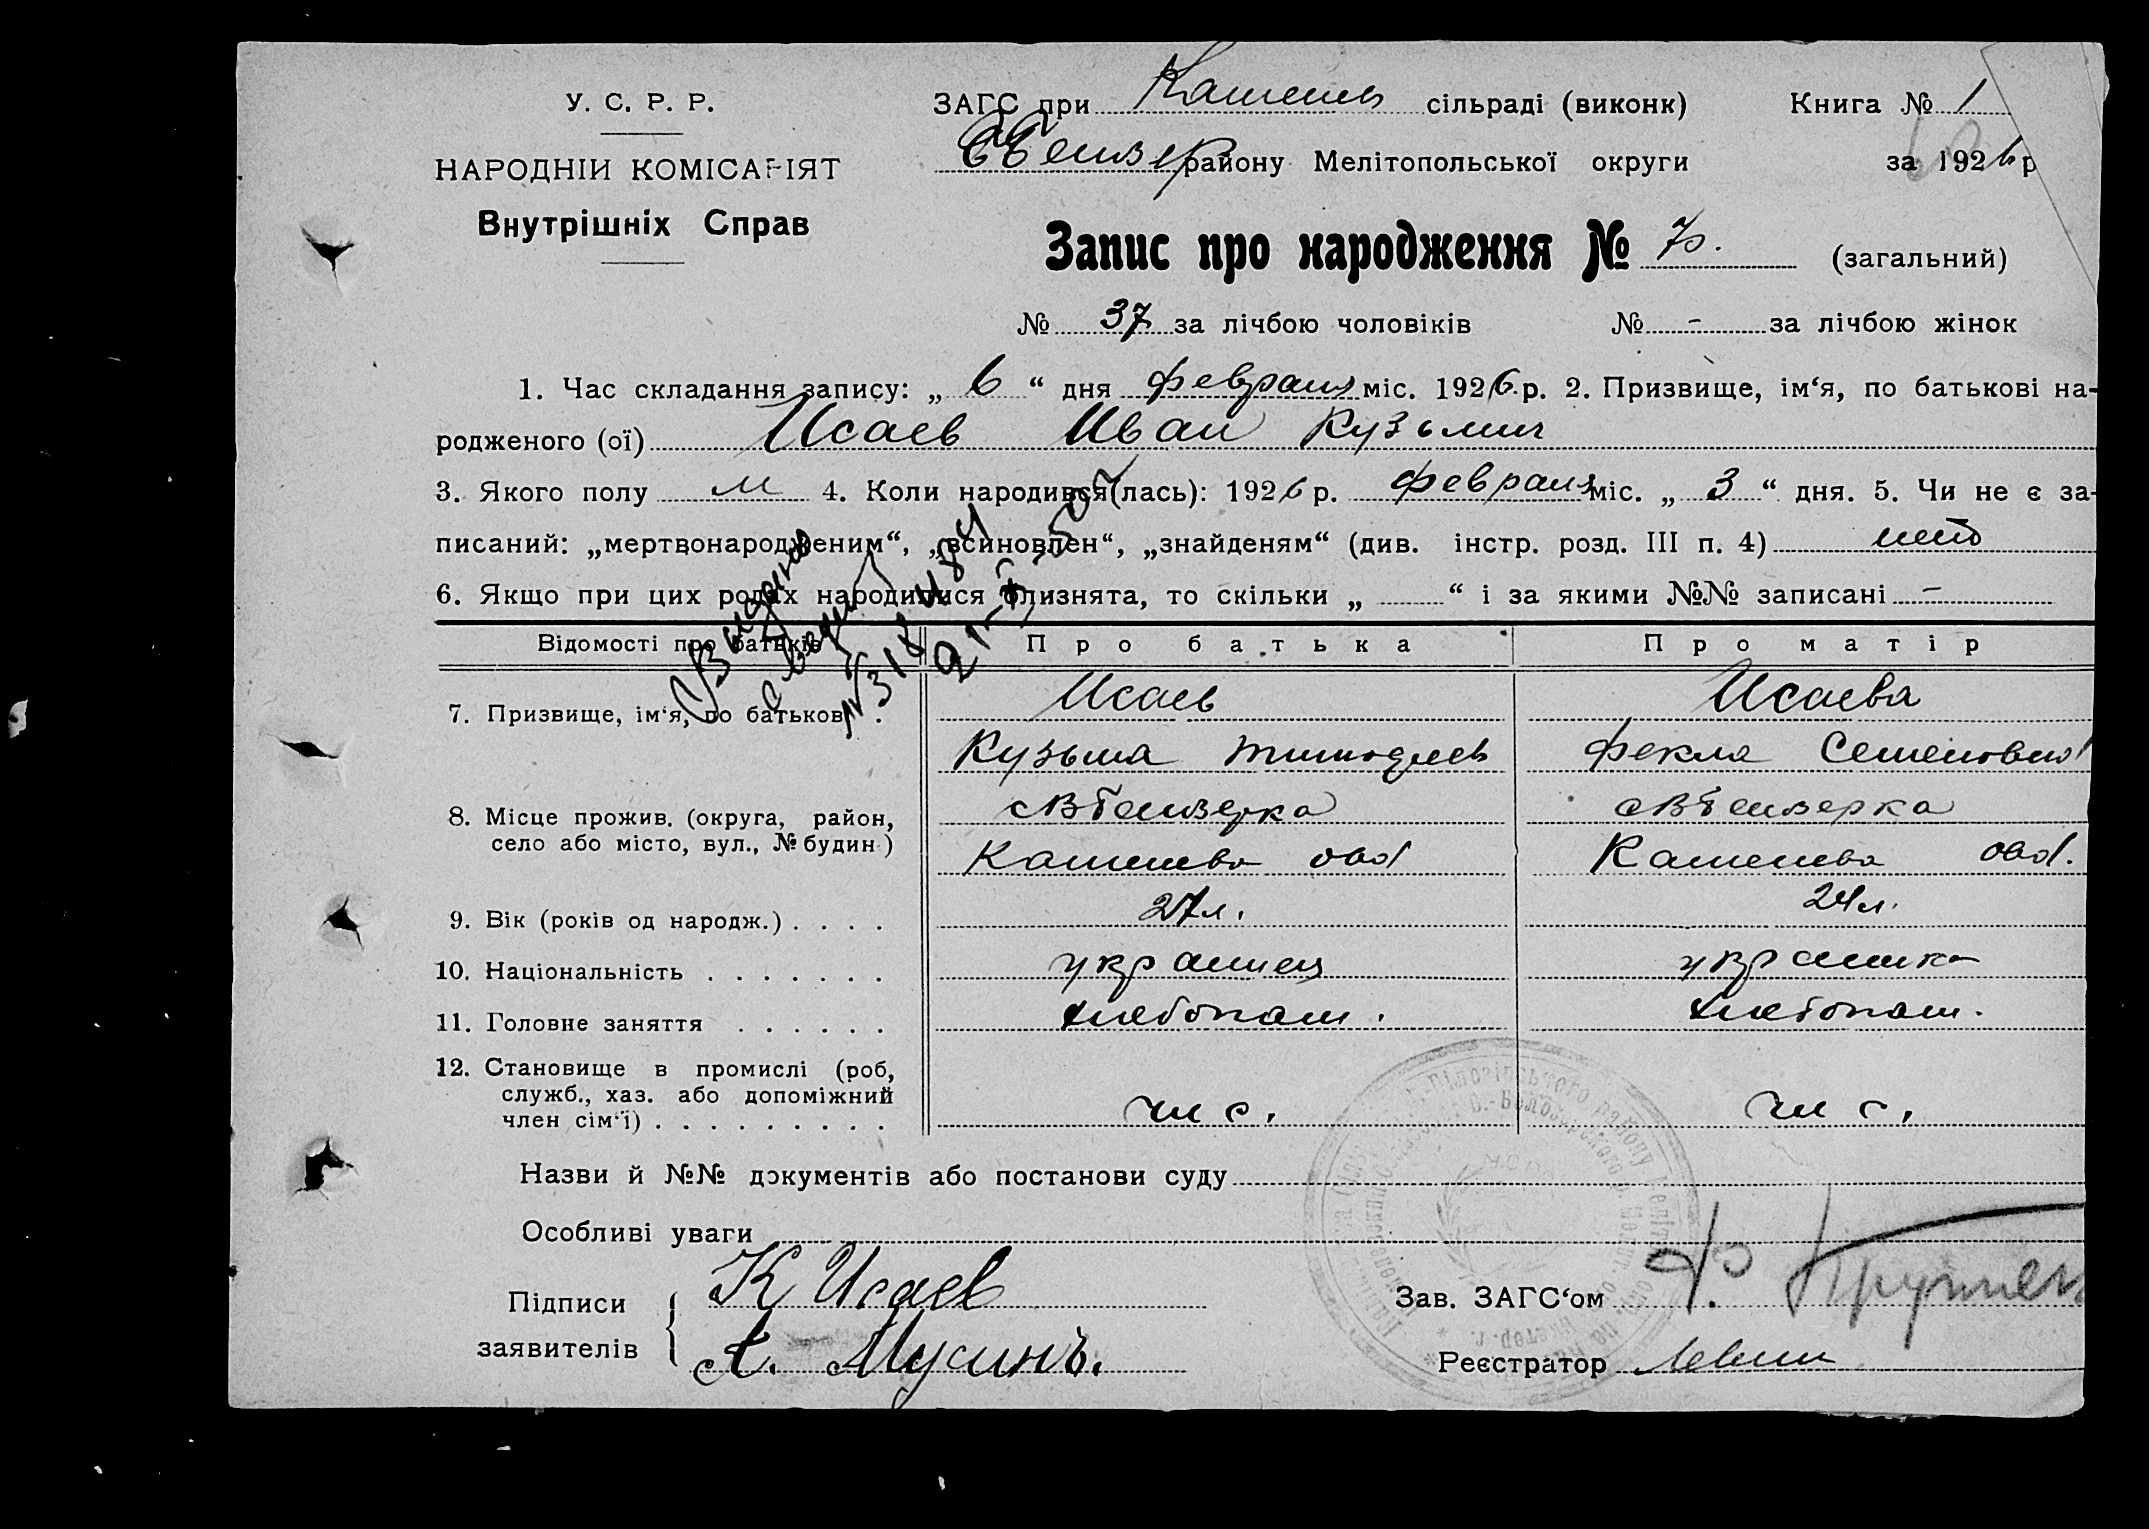 У. С. Р. Р.
НАРОДНІЙ КОМІСАРІЯТ
Внутрішніх Справ
ЗАГС при сільраді (виконк) Книга № 1
району Мелітопольської округи за 1926 р
Запис про народження № (загальний)
№ 37 за лічбою чоловіків № - за лічбою жінок
1. Час складання запису: „ 6 “ дня февраля міс. 1926 р. 2. Призвище, ім‘я, по батькові на-
родженого (ої) Исаев Иван Кузьмич
3. Якого полу м 4. Коли народився(лась): 1926 р. февраля міс. „ 3 “ дня. 5. Чи не є за-
писаний: „мертвонародженим“, „всиновлен“, „знайденям“ (див. інстр. розд. III п. 4) нет
6. Якщо при цих родах народилися близнята, то скільки „ “ і за якими №№ записані -
Выдано
свид
21-
Відомості про батьків Про батька Про матір
7. Призвище, ім‘я, по батькові . Исаев Исаева
Кузьма Тимофеев Фекла Семеновна
8. Місце прожив. (округа, район, с Вбелозерка с Вбелозерка
село або місто, вул., № будин.)
9. Вік (років од народж.) . . . . 27 л. 24 л.
10. Національність . . . . . . . украинец украинка
11. Головне заняття . . . . . . хлебопаш. хлебопаш.
12. Становище в промислі (роб,
служб., хаз. або допоміжний
член сім‘ї) . . . . . . . . . чл с. чл с.
Назви й №№ документів або постанови суду
Особливі уваги
Підписи К Исаев Зав. ЗАГС‘ом
заявителів А. Мусинъ. Реєстратор